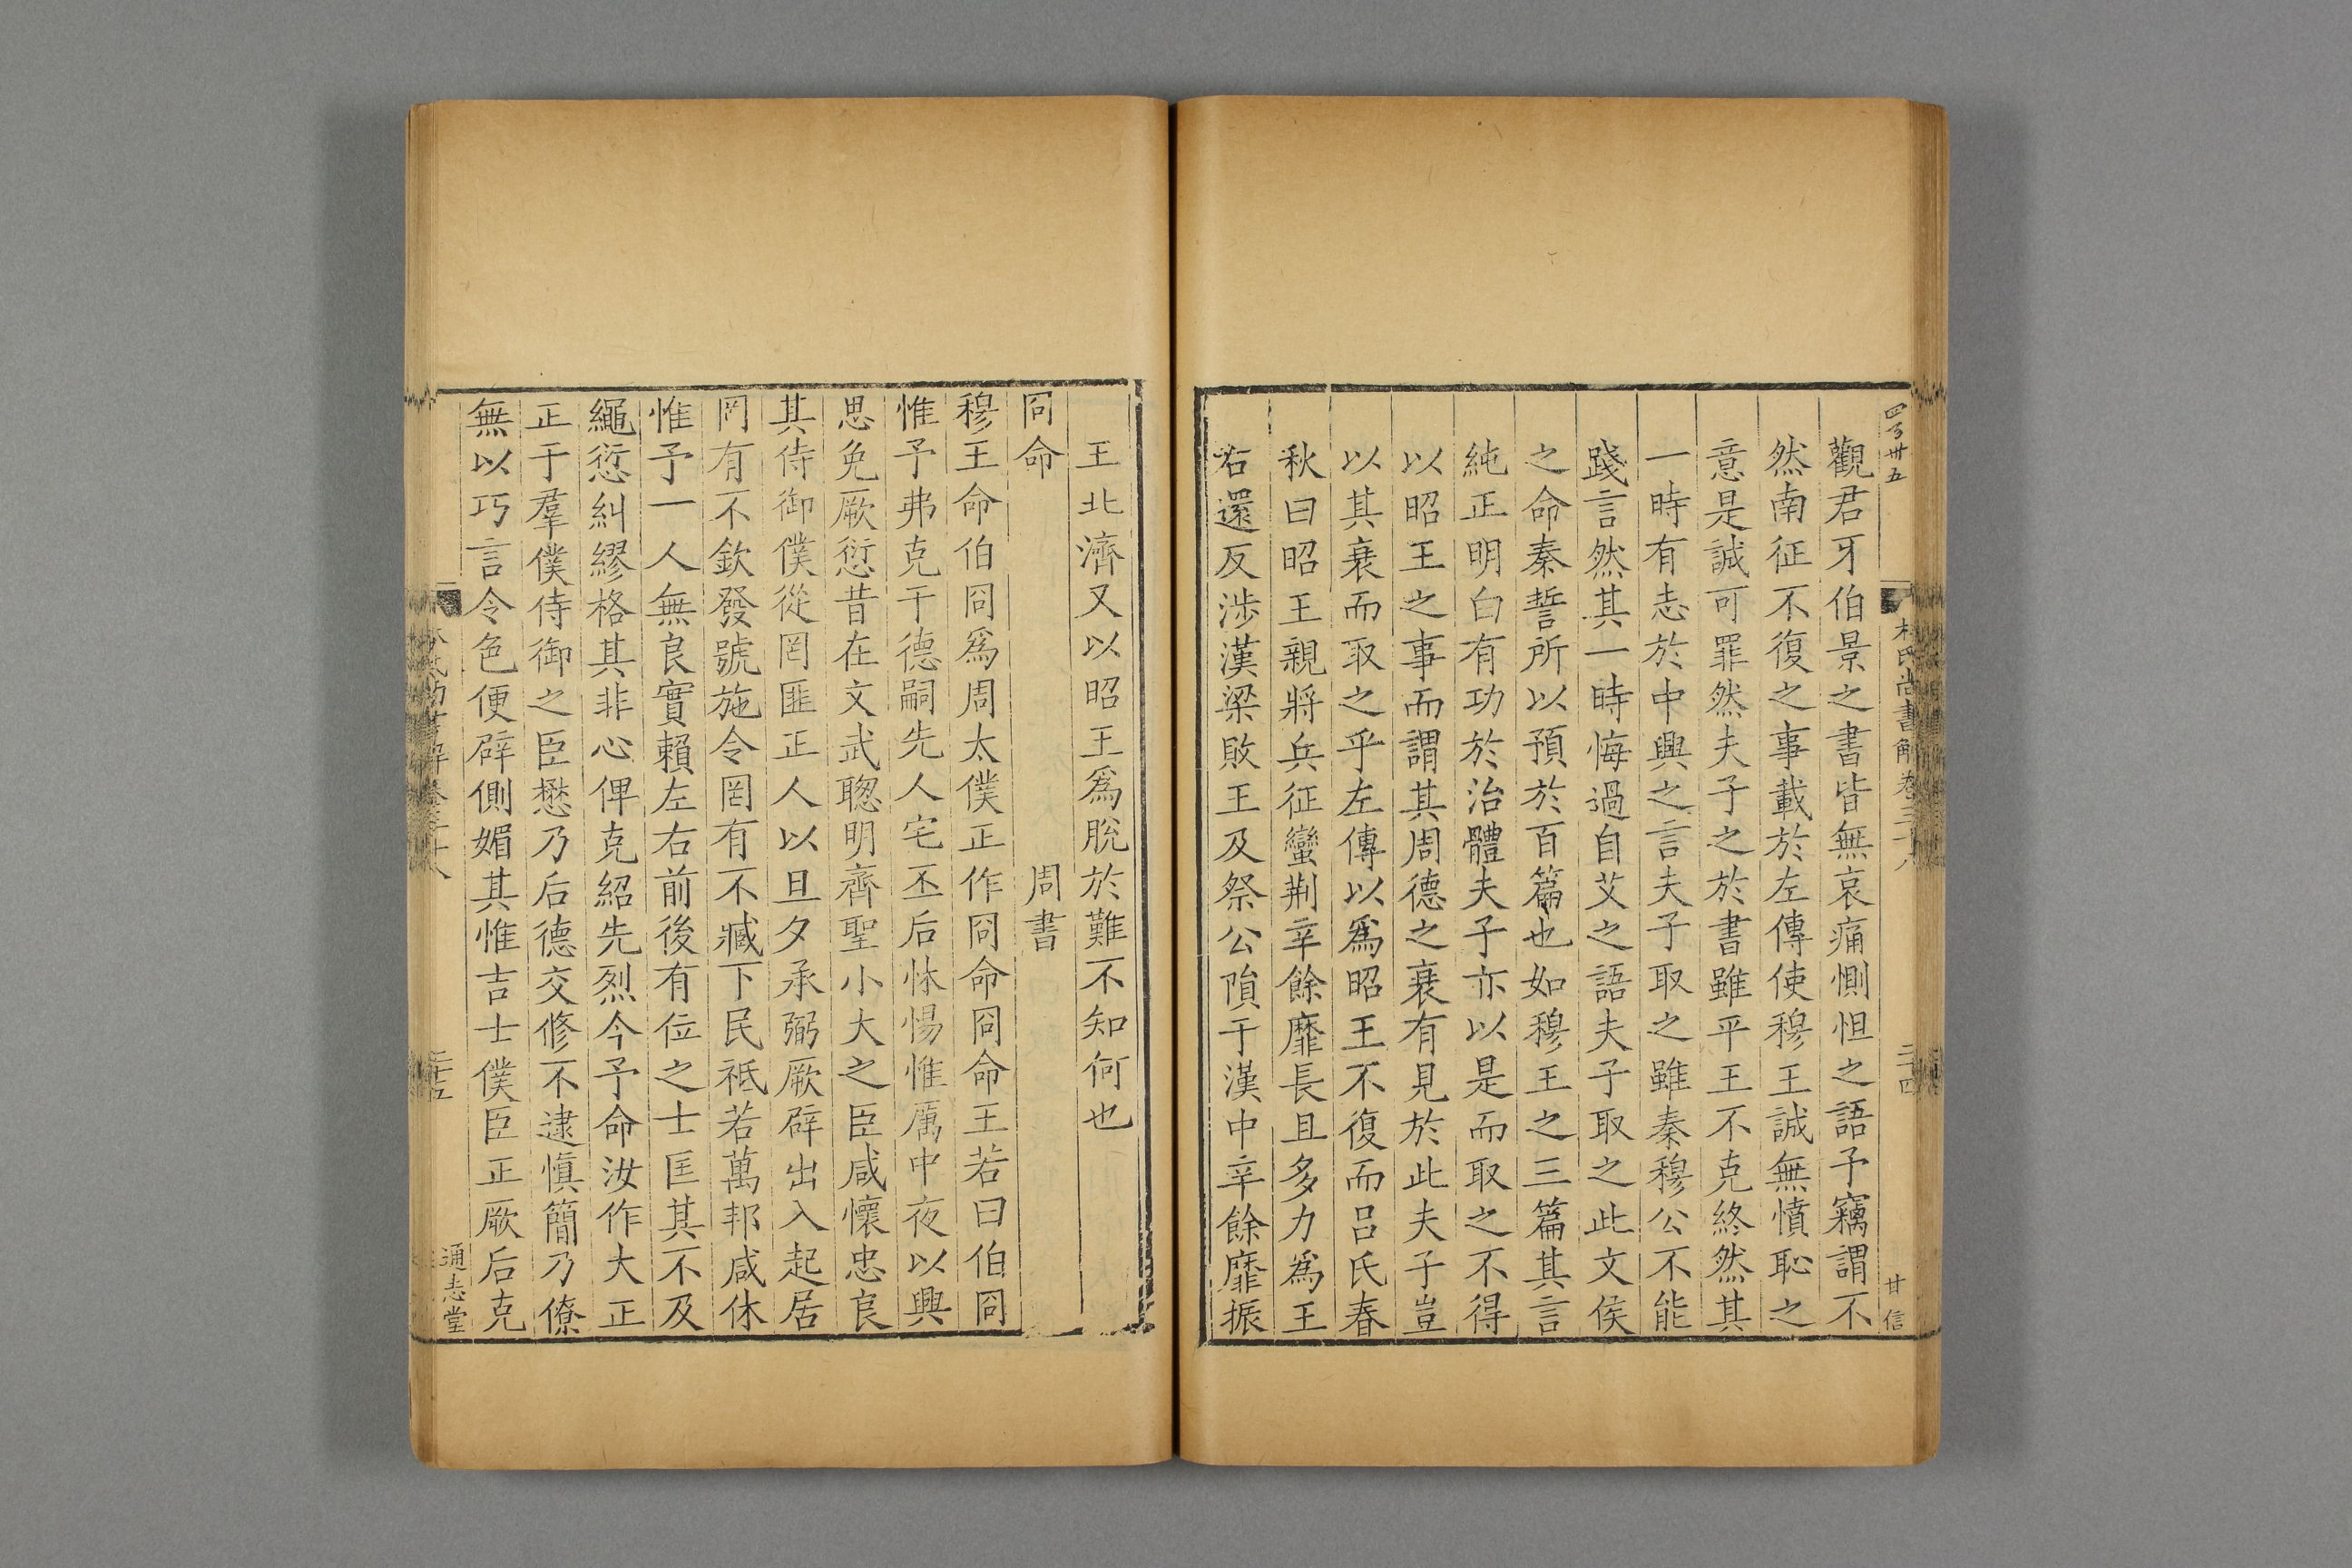 四百卅五
林氏尚書解卷三十八
二十四
甘信
觀君牙伯景之書皆無哀痛惻怛之語予竊謂不
然南征不復之事載於左傳使穆王誠無憤恥之
意是誠可罪然夫子之於書雖平王不克終然其
一時有志於中興之言夫子取之雖秦穆公不能
踐言然其一時悔過自艾之語夫子取之此文侯
之命秦誓所以預於百篇也如穆王之三篇其言
純正明白有功於治體夫子亦以是而取之不得
以昭王之事而謂其周德之衰有見於此夫子豈
以其衰而取之乎左傳以爲昭王不復而呂氏春
秋曰昭王親將兵征蠻荆辛餘靡長且多力爲王
右還反涉漢梁敗王及祭公隕于漢中辛餘靡振
王北濟又以昭王爲脫於難不知何也
冏命
周書
穆王命伯冏爲周太僕正作冏命冏命王若曰伯冏
惟予弗克于德嗣先人宅丕后怵惕惟厲中夜以興
思免厥愆昔在文武聦明齊聖小大之臣咸懷忠良
其侍御僕從罔匪正人以旦夕承弼厥辟出入起居
罔有不欽發號施令罔有不臧下民祗若萬邦咸休
惟予一人無良實賴左右前後有位之士匡其不及
繩愆糾繆格其非心俾克紹先烈今予命汝作大正
正于羣僕侍御之臣懋乃后德交修不逮愼簡乃僚
無以巧言令色便辟側媚其惟吉士僕臣正厥后克
二十五
通志堂